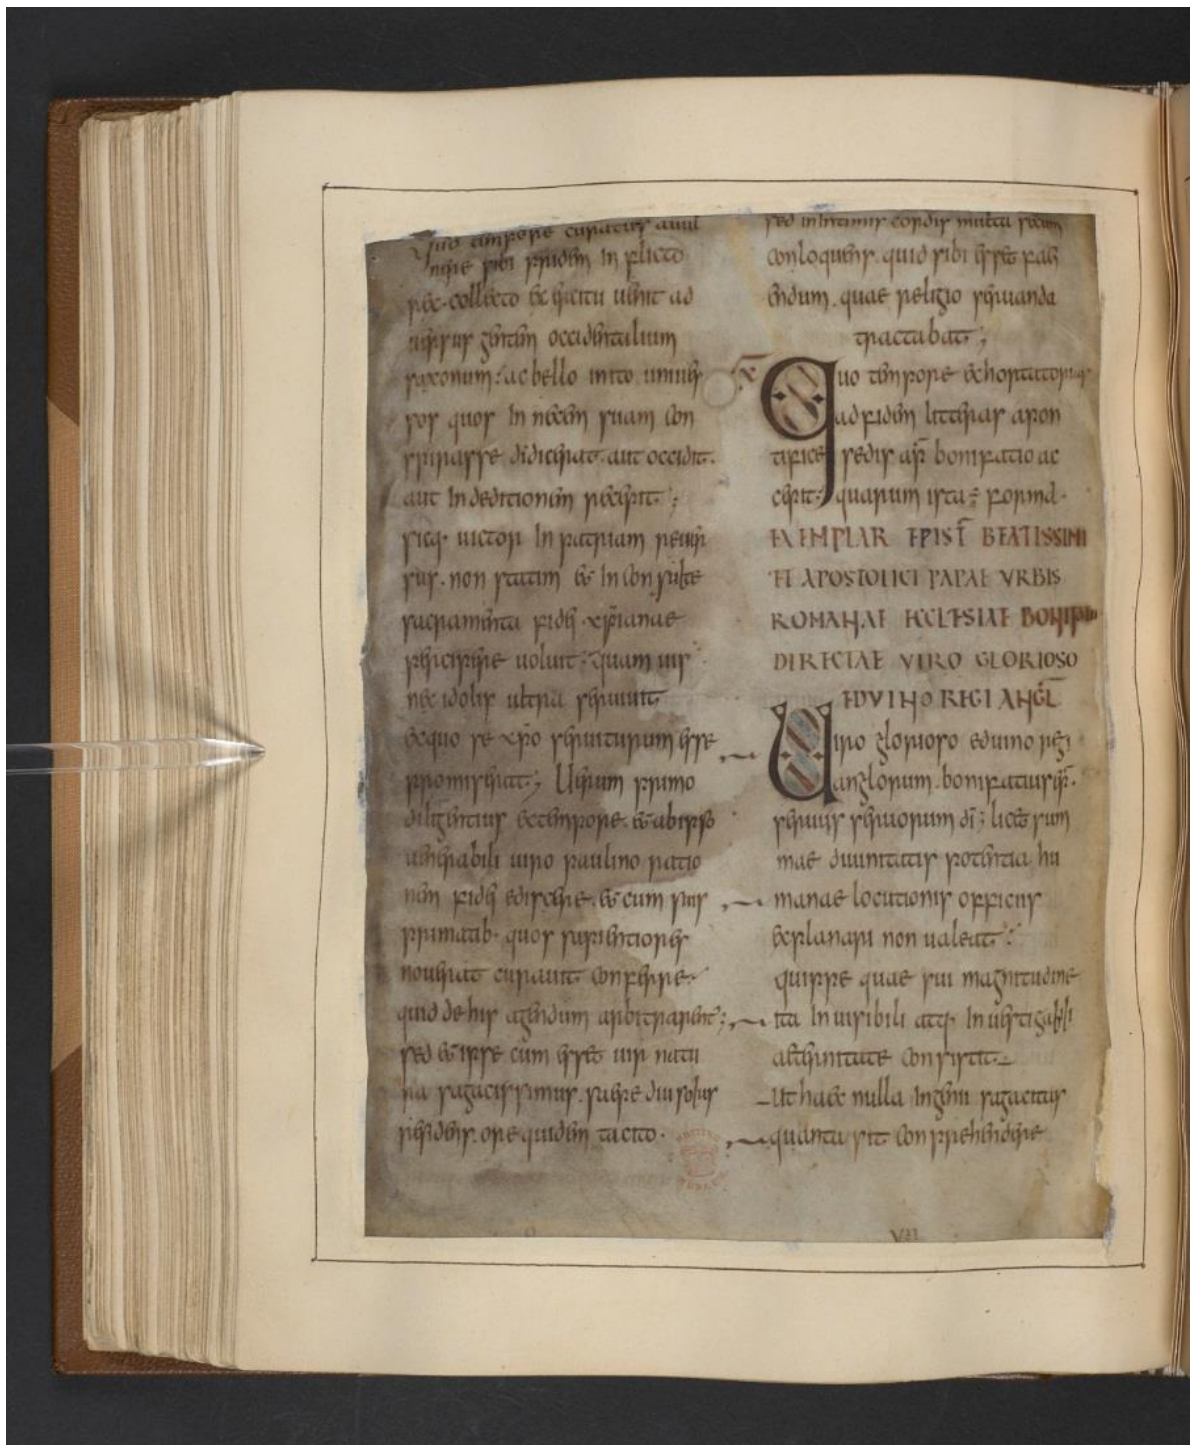 quo tempore curatus a uul
nere sibi pridem inflicto
rex collecto exercitu uenit ad
uersus gentem occidentalium
saxonum: ac bello inito uniuer
sos quos in necem suam con
spirasse didicerat. aut occidit.
aut in deditionem recepit.;
sicq· uictor in patriam reuer
sus. non statim et inconsulte
sacramenta fidei xp̄ianae
percipere uoluit: quamuis
nec idolis ultra seruiuit
ex quo se xp̄o seruiturum esse
promiserat; Uerum primo
diligentius ex tempore. et ab ipso
uenerabili uiro paulino ratio
nem fidei ediscere. et cum suis
primatib· quos sapientiores
nouerat curauit conferre.
quid de his agendum arbitrarent;
sed et ipse cum esset uir natu
ra sagacissimus. saepe diu solus
residens. ore quidem tacito·
sed in intimis cordis multa secum
conloquens. quid sibi esset faci
endum. quae religio seruanda
tractabat;
x̄ Quo tempore exhortatorias
ad fidem litteras a pon
tifice sedis ap̄ bonifatio ac
cepit: quarum ista ÷ forma·
EXEMPLAR EPIST̄ BEATISSIMI
ET APOSTOLICI PAPAE VRBIS
ROMANAE ECCLESIAE BONIFATII
DIRECTAE VIRO GLORIOSO
EDVINO REGI ANGL̄
Uiro glorioso eduino regi
anglorum. bonifatius ep̄·
seruus seruorum dī; licet sum
mae diuinitatis potentia hu
manae locutionis officiis
explanari non ualeat:
quippe quae sui magnitudine
ita inuisibili atq· inuestigabili
aeternitate consistit.
ut haec nulla ingenii sagacitas
quanta sit conprehendere
VII